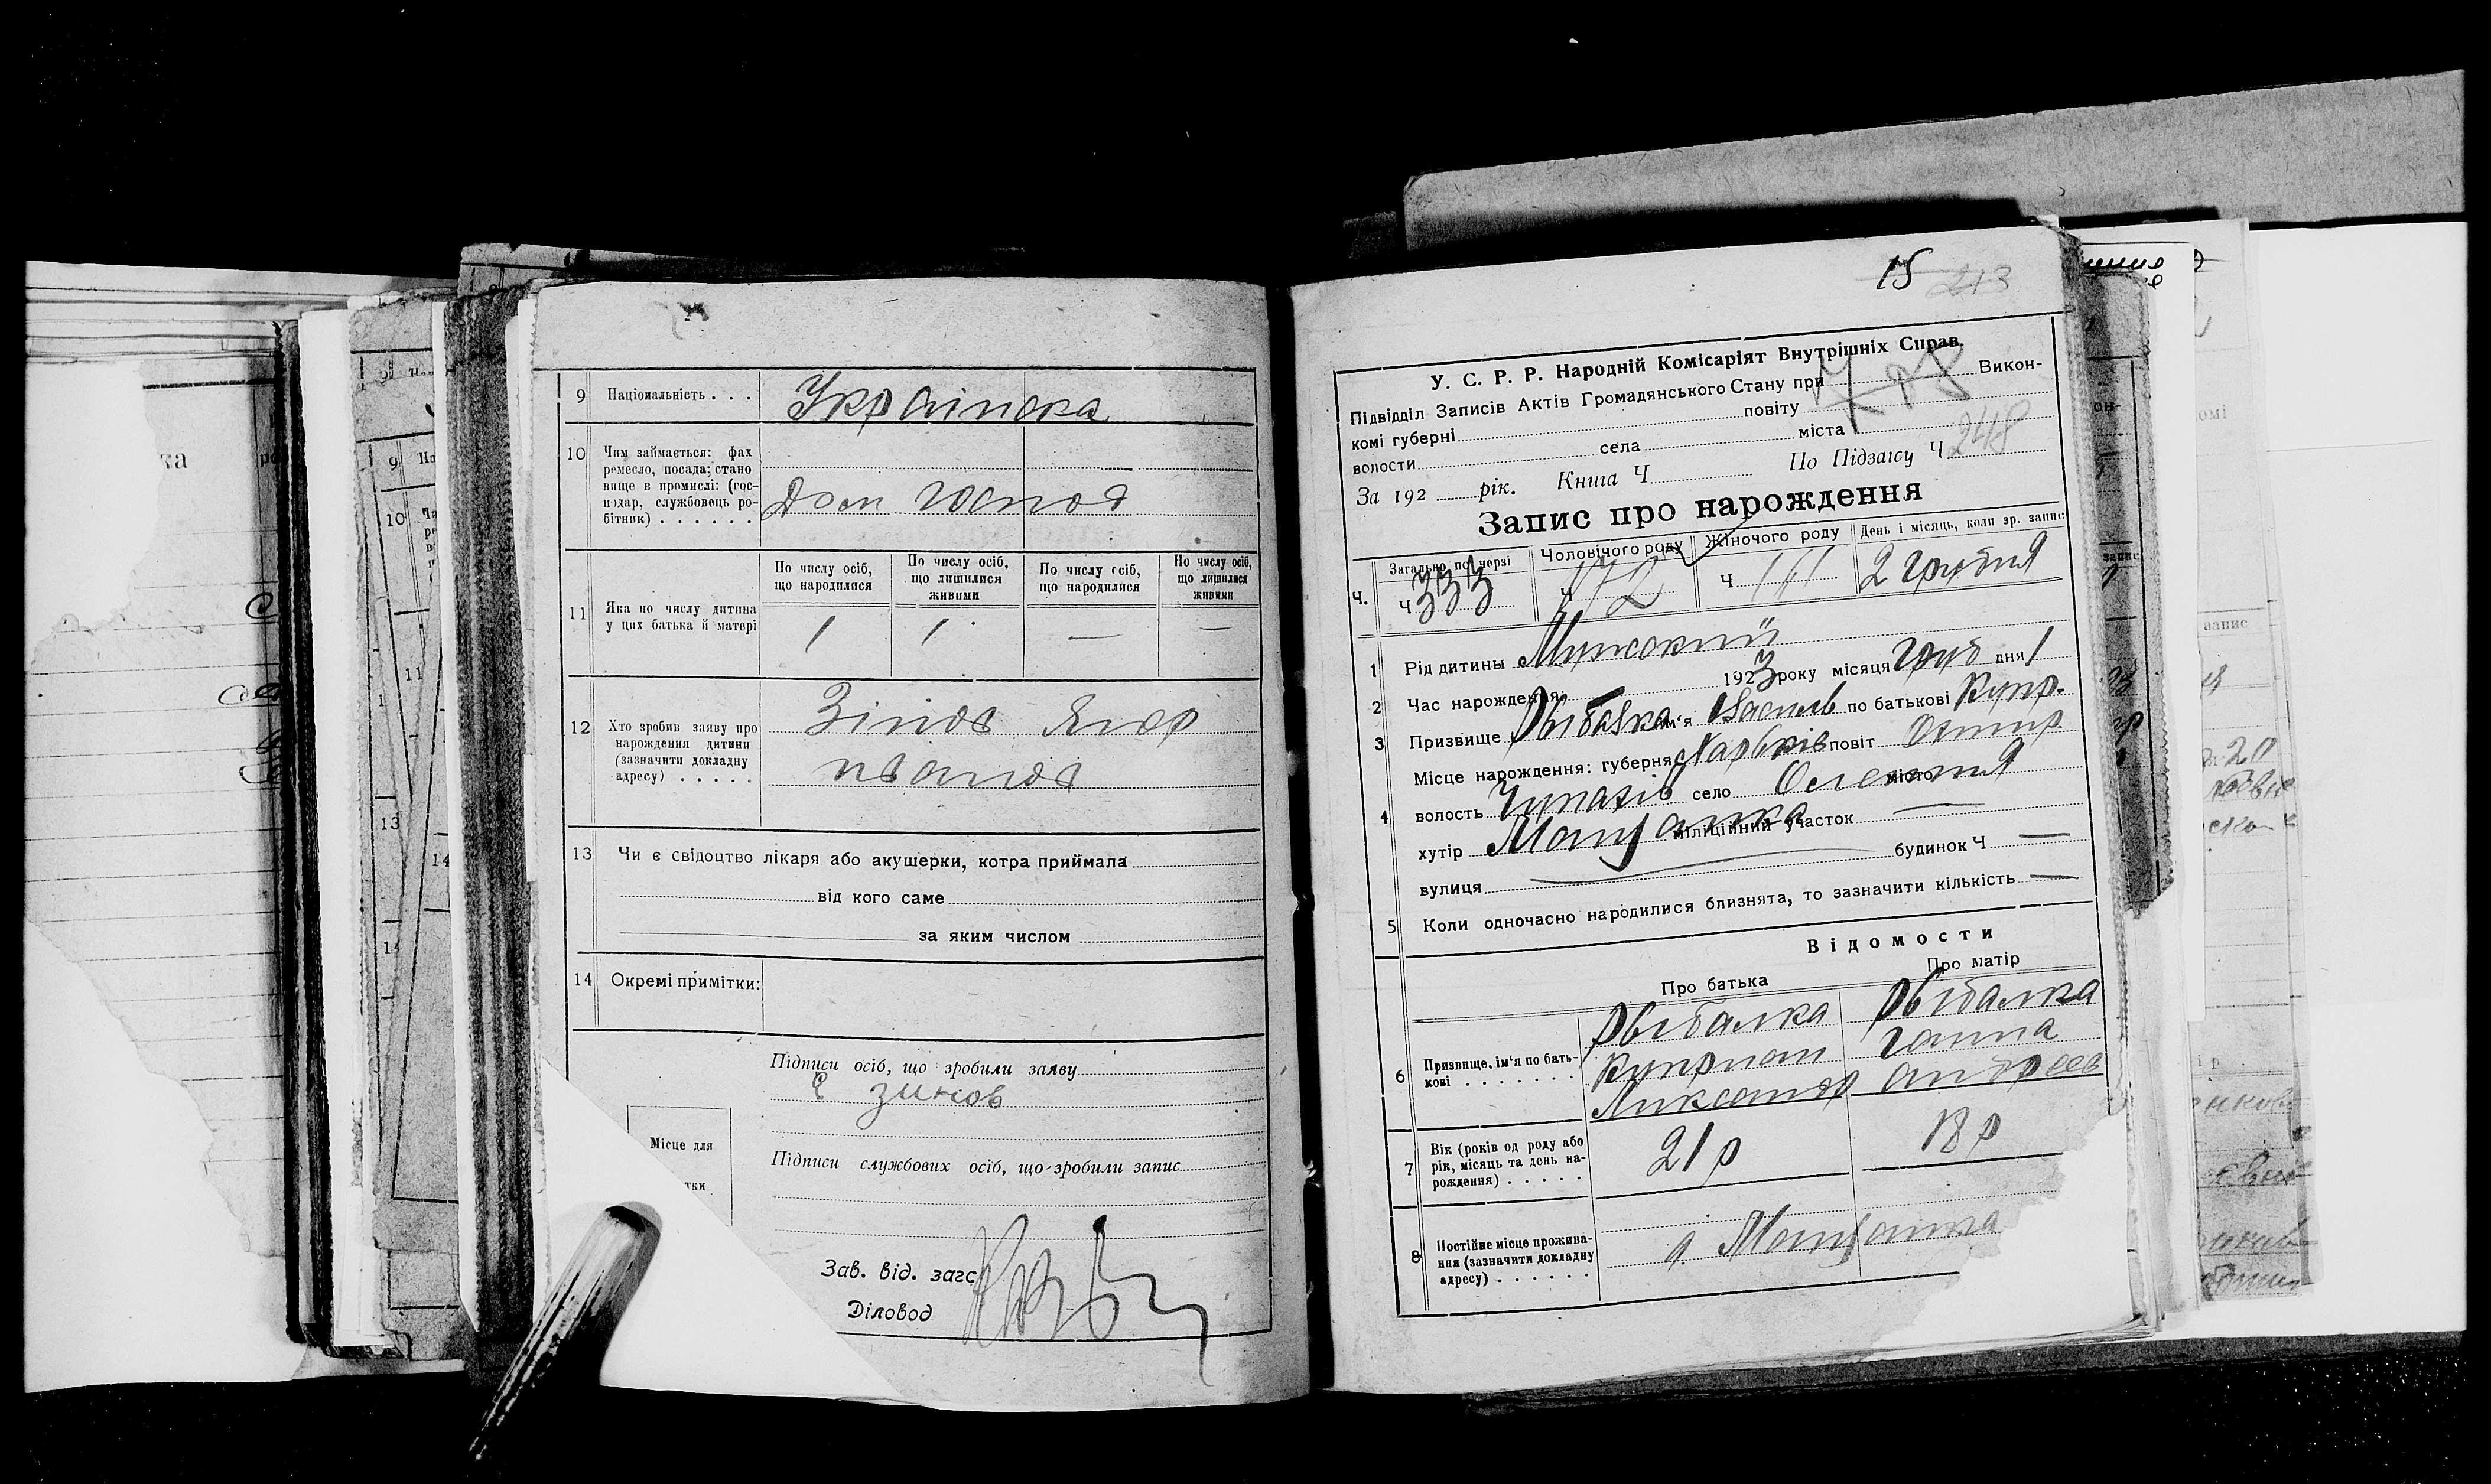 9 Національність . . . Українска
10 Чим займається: фах
ремесло, посада; стано
вище в промислі: (гос-
подар, службовець ро-
бітник) . . . . . .
Дом господ
11 Яка по числу дитина
у цих батька й матері
По числу осіб,
що народилися
По числу осіб,
що лишилися
живими
По числу осіб,
що народилися
Но числу осіб,
що лишилися
живими
1 1 — —
12 Хто зробив заяву про
нарождення дитини
(зазначити докладну
адресу) . . . . .
Зінов Ягор
Иванов
13 Чи є свідоцтво лікаря або акушерки, котра приймала
від кого саме
за яким числом
14 Окремі примітки:
Підписи осіб, що зробили заяву
Е Зинов
Місце для
тки
Підписи службових осіб, що зробили запис
Зав. від. загс
Діловод
15 213
У. С. Р. Р. Народній Комісаріят Внутрішніх Справ.
Підвідділ Записів Актів Громадянського Стану при Викон-
комі губерні повіту
волости села міста
За 192 рік. Книга Ч По Підзагсу Ч 248
Запис про нарождення
Ч. Загально по черзі Чоловічого роду Жіночого роду День і місяць, коли зр. запис
Ч 333 Ч 172 Ч 161 2 грудня
1 Рід дитини Мужский
2 Час нарождення: 1923 року місяця груд дня 1
3 Призвище Рыбалка ім'я Василь по батькові Купр.
4 Місце нарождення: губерня Харьків повіт Охтир
волость Чупахів село місто
хутір міліційний участок —
вулиця будинок Ч —
5 Коли одночасно народилися близнята, то зазначити кількість —
Відомости
Про батька Про матір
6 Призвище, ім'я по бать-
кові . . . . . . .
Рыбалка
Куприан
Александр
Рыбалка
Ганна
Андреев
7 Вік (років од роду або
рік, місяць та день на-
рождення) . . . . .
21 р 18 р
8 Постійне місце прожива-
ння (зазначити докладну
адресу) . . . . . .